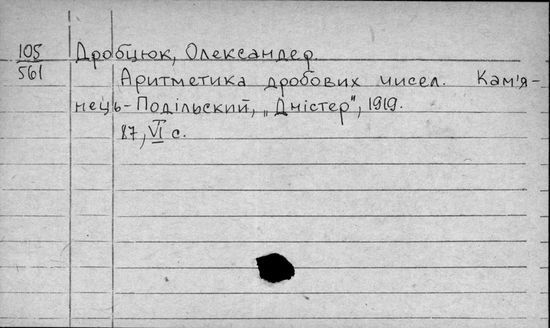 105
561
Дробцюк, Олександер
Аритметика дробових чисел. Кам'я-
нець-Подільский, „Дністер", 1919.
87, VI с.